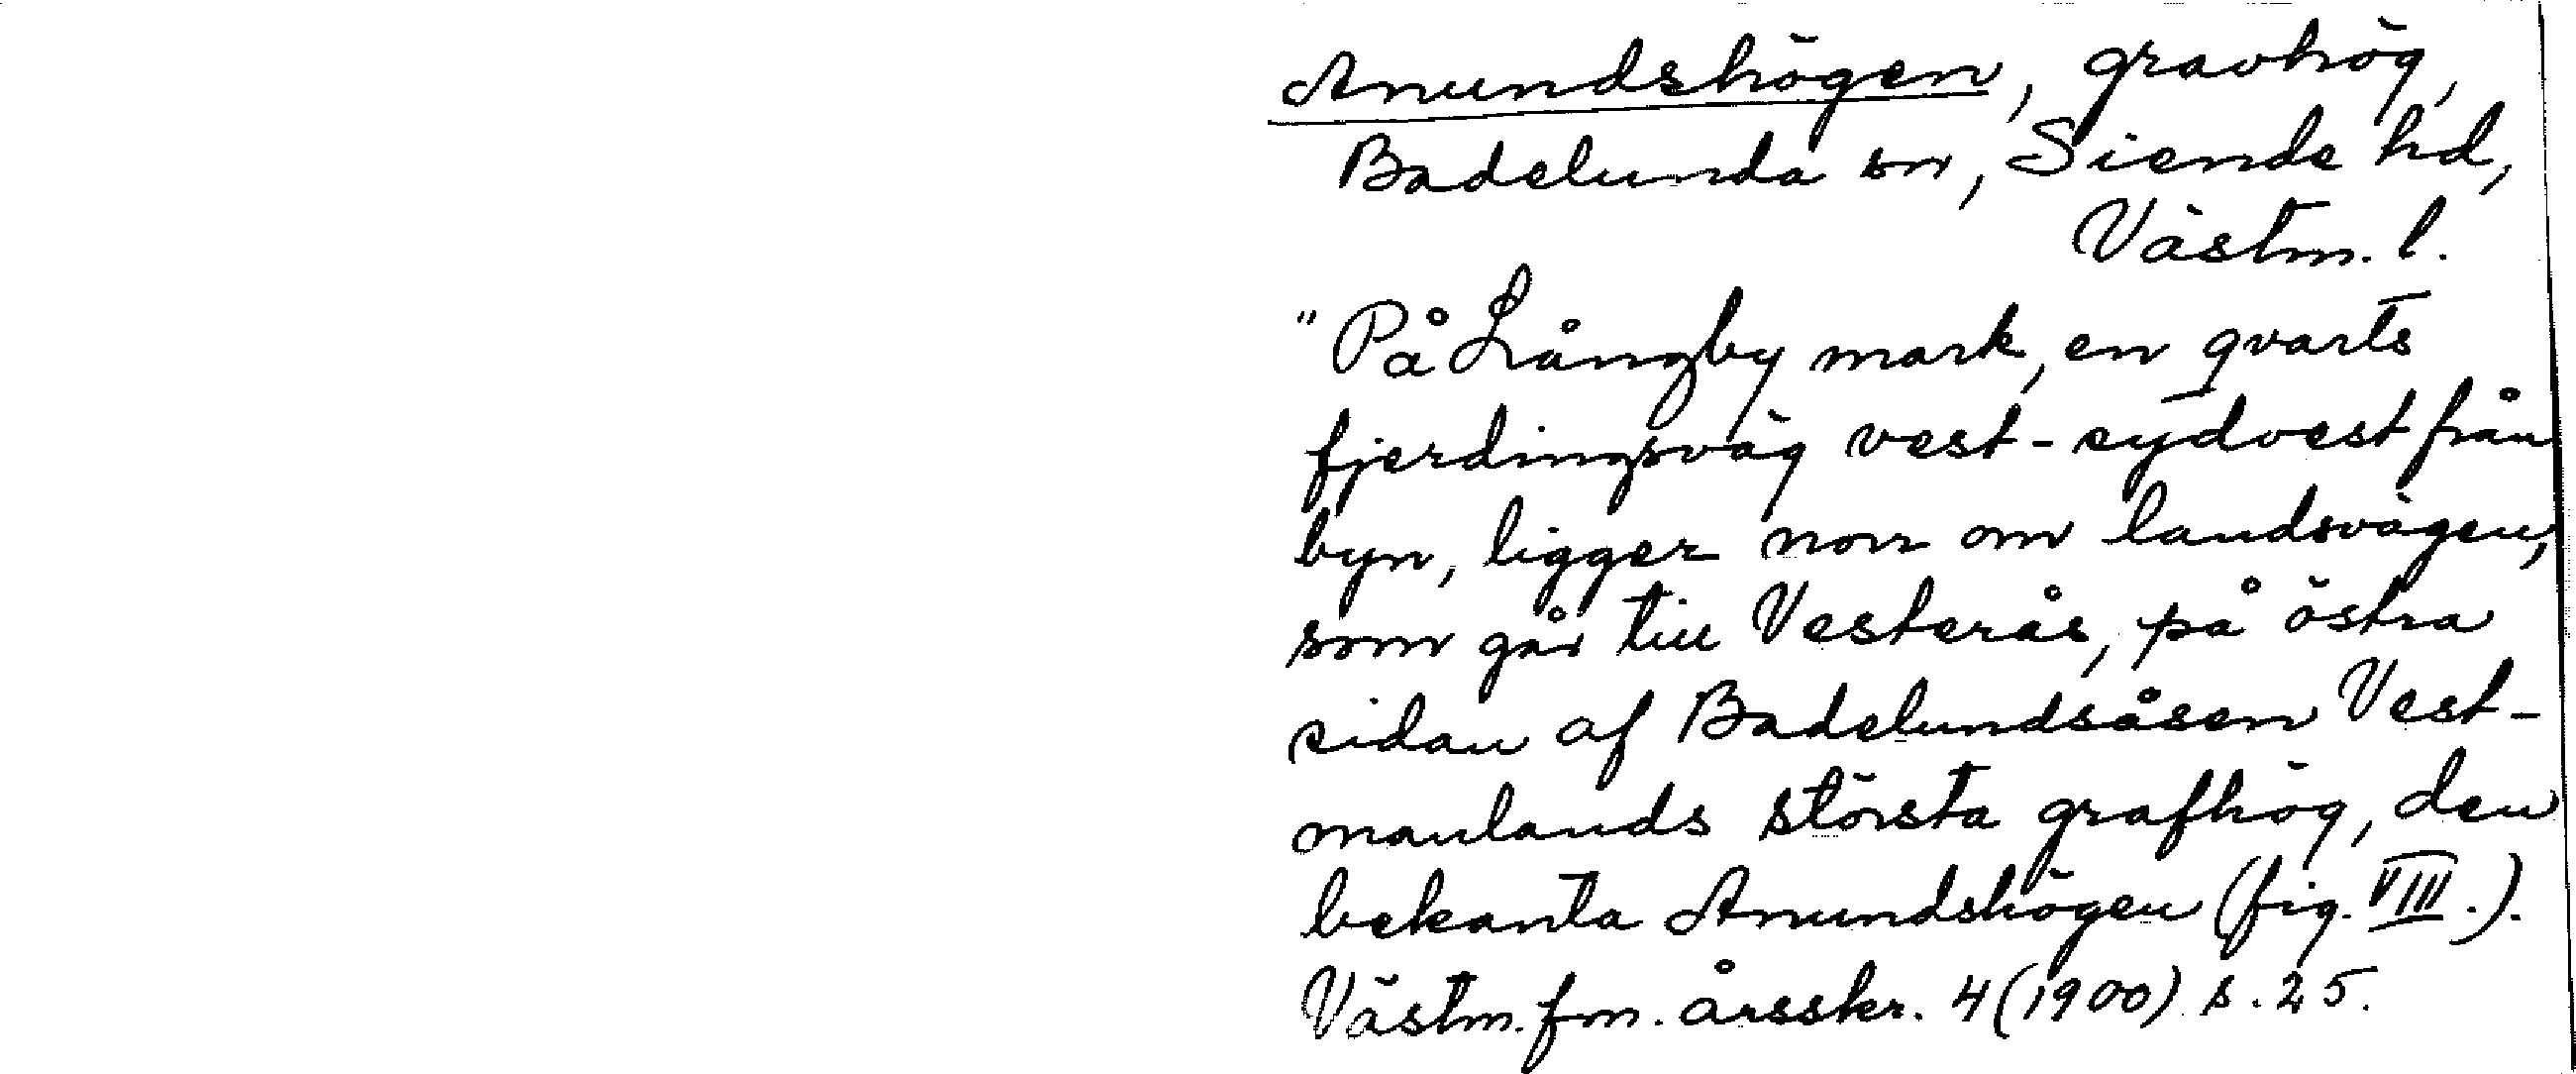 Anundshögen, gravhög,
Badelunda sn, Siende hd,
Västm. l.
"På Långby mark, en qvarts
fjerdingsväg vest-sydvest från
byn, ligger norr om landsvägen,
som går till Vesterås, på östra
sidan af Badelundsåsen Vest-
manlands största grafhög, den
bekanta Anundshögen (fig. VIII.).
Västm. fm. årsskr. 4 (1900) s. 25.